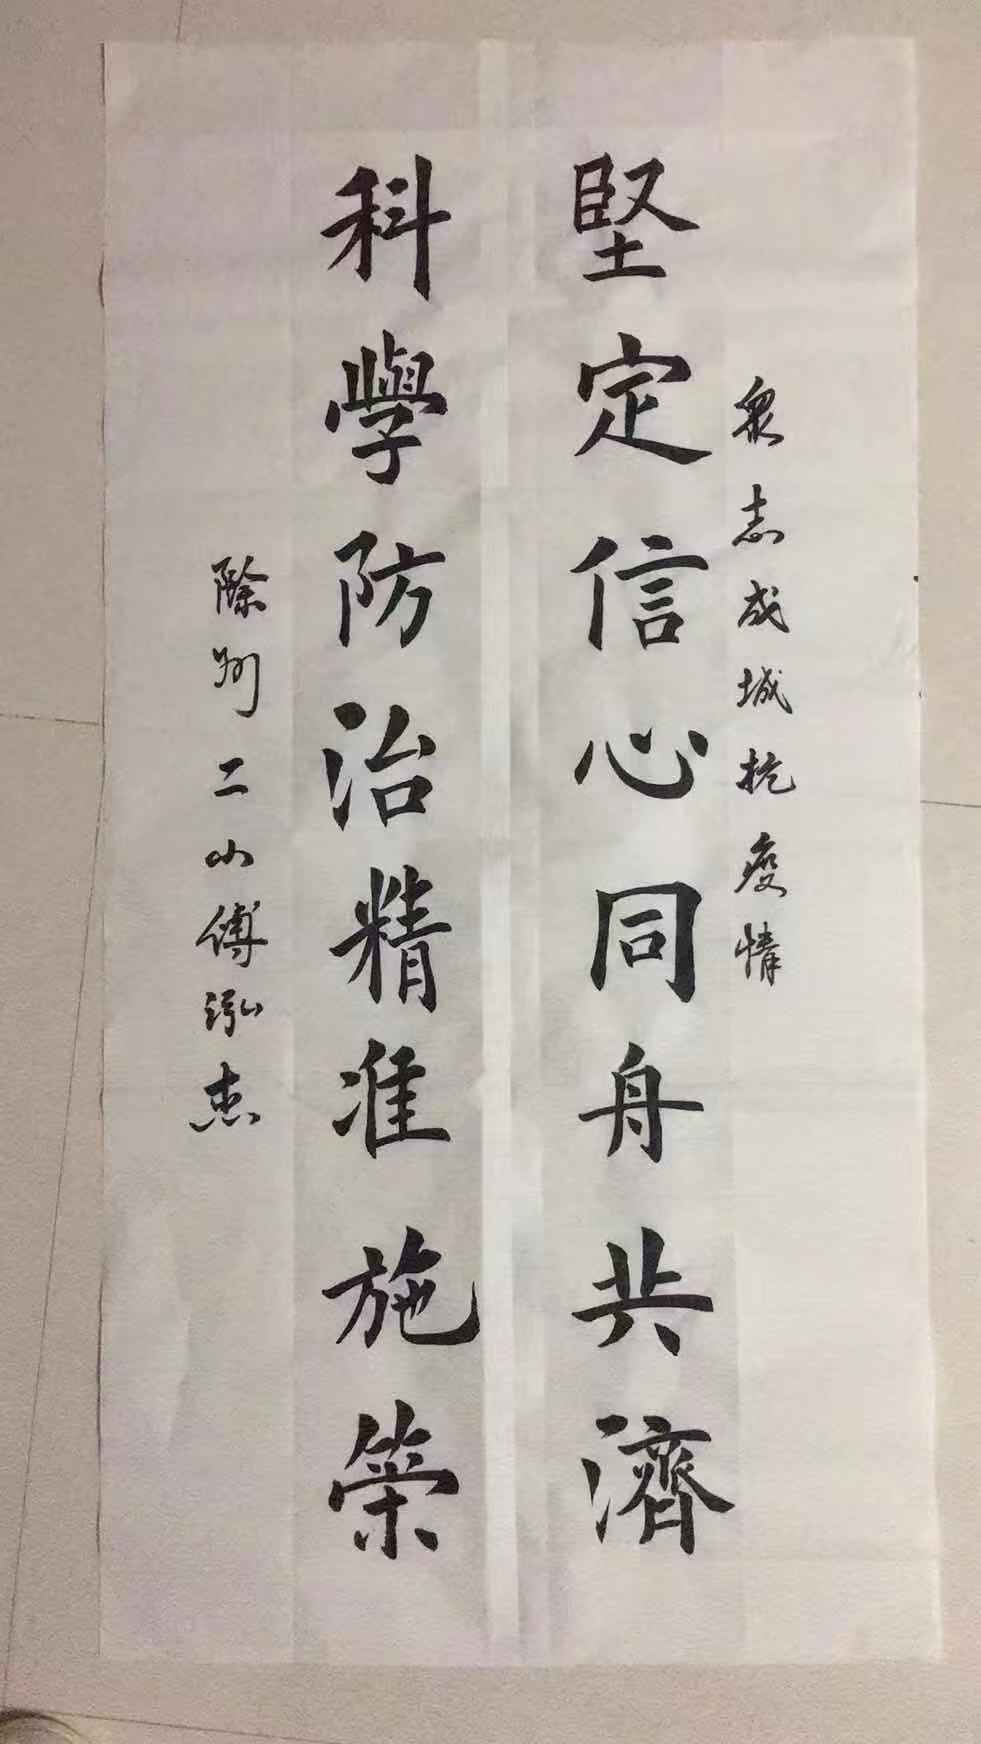 衆志成城抗疫情
堅定信心同舟共濟
科學防治精准施策
滁州二小傅泓杰